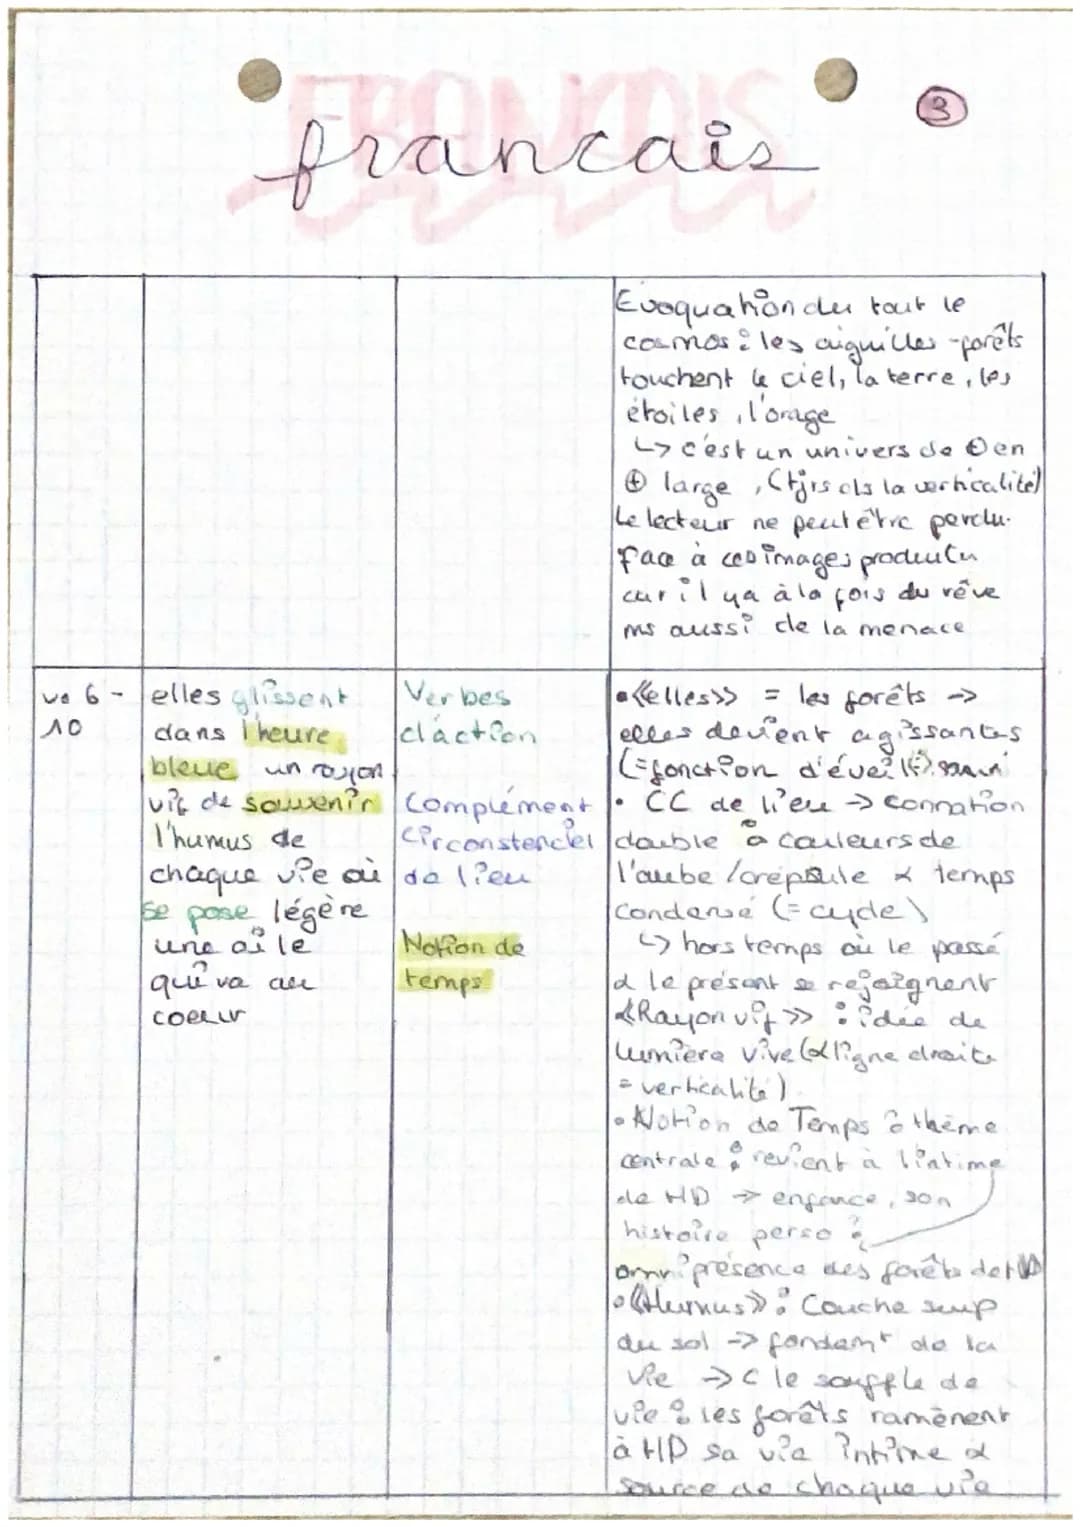 FRANCAIS
francais
3
Evoquation du tout le
cosmos : les aiguilles-forêts
touchent le ciel, la terre, les
étoiles, l'orage
↳ c'est un univers de ⊕ en
⊕ large, (tjrs ds la verticalité)
Le lecteur ne peut être perdu
face à ces images
car il y a à la fois du rêve
ms aussi de la menace
vs 6 -
10
elles glissent
dans l'heure
bleue un rayon
vif de souvenir
l'humus de
chaque vie où
se pose légère
une aile
qui va au
coeur
Verbes
d'action
Complément
Circonstenciel
de lieu
Notion de
temps
• «elles» = les forêts →
elles devient agissantes
(=fonction d'éveil
• CC de lieu → connation
double à couleurs de
l'aube/crépsule & temps
condensé (=cycle)
↳ hors temps où le passé
& le présent se rejoignent
«Rayon vif» : idée de
lumière vive (& ligne droite
= verticalité).
• Notion de Temps à thème
centrale : revient à l'intime
de HD → enfance, son
histoire perso :
omniprésence des forêts de HD
• «Humus» : Couche sup
du sol → fondemt de la
vie → C le souffle de
vie : les forêts ramènent
à HD sa vie intime &
source de chaque vie